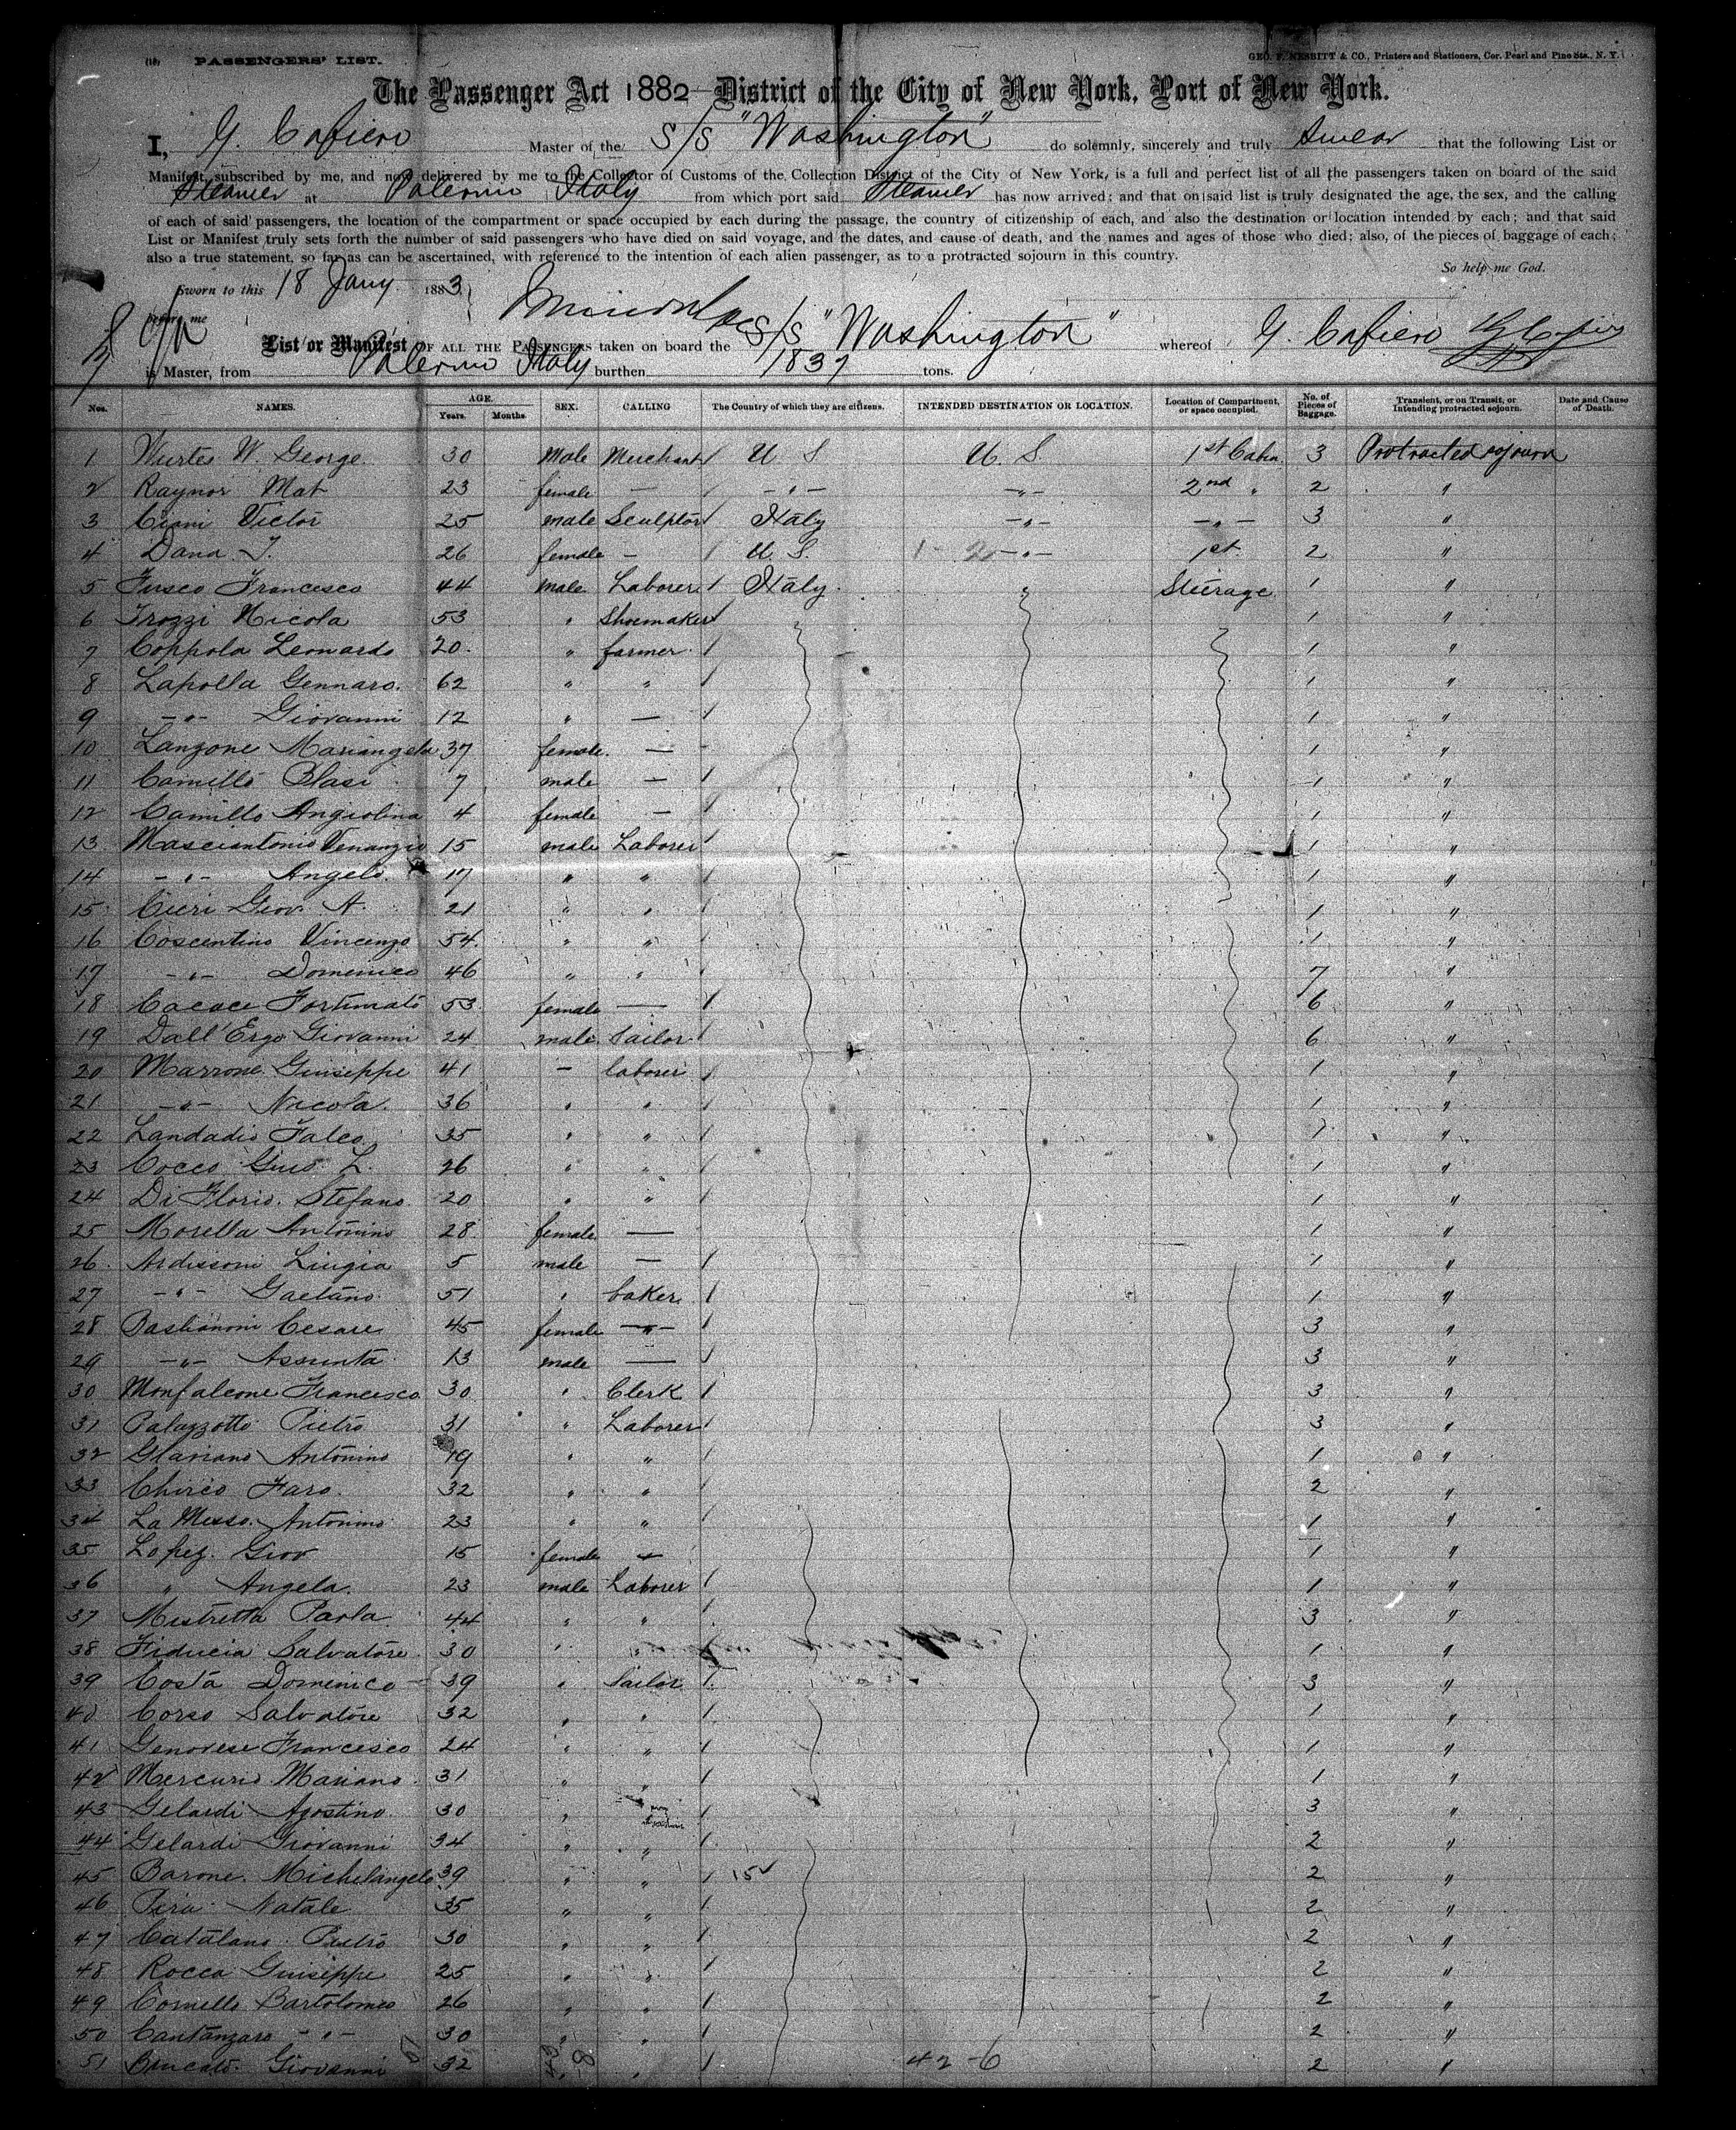 (18) PASSENGERS' LIST.
GEO. F. NESBITT & CO., Printers and Stationers, Cor. Pearl and Pine Sts., N. Y.
The Passenger Act 1882 District of the City of New York, Port of New York.
I, G. Cafiero Master of the S/S "Washington" do solemnly, sincerely and truly Swear that the following List or
Manifest, subscribed by me, and now delivered by me to the Collector of Customs of the Collection District of the City of New York, is a full and perfect list of all the passengers taken on board of the said
Steamer at Palermo Italy from which port said Steamer has now arrived; and that on said list is truly designated the age, the sex, and the calling
of each of said passengers, the location of the compartment or space occupied by each during the passage, the country of citizenship of each, and also the destination or location intended by each; and that said
List or Manifest truly sets forth the number of said passengers who have died on said voyage, and the dates, and cause of death, and the names and ages of those who died; also, of the pieces of baggage of each;
also a true statement, so far as can be ascertained, with reference to the intention of each alien passenger, as to a protracted sojourn in this country.
So help me God.
Sworn to this 18 Jany 1883
before me
List or Manifest OF ALL THE PASSENGERS taken on board the S/S "Washington" whereof G. Cafiero
is Master, from Palermo Italy burthen 1837 tons.
Nos. NAMES. AGE. Years. Months. SEX. CALLING The Country of which they are citizens. INTENDED DESTINATION OR LOCATION. Location of Compartment, or space occupied. No. of Pieces of Baggage. Transient, or on Transit, or Intending protracted sojourn. Date and Cause of Death.
1 Wurtes W. George 30 Male Merchant U S U. S 1st Cabin 3 Protracted sojourn
2 Raynor Mat 23 female — / -"- -"- 2nd " 2 "
3 Ciani Victor 25 male Sculptor / Italy -"- -"- 3 "
4 Dana J. 26 female - / U S -"- 1st 2 "
5 Fusco Francesco 44 male Laborer / Italy " Steirage 1 "
6 Trozzi Nicola 53 " Shoemaker / 1 "
7 Coppola Leonardo 20 " farmer / 1 "
8 Lapolla Gennaro 62 " " / 1 "
9 -"- Giovanni 12 " — / 1 "
10 Lanzone Mariangela 37 female — 1 "
11 Camillo Blasi 7 male — / 1 "
12 Camillo Angiolina 4 female — / 1 "
13 Masciantonio Venanzio 15 male Laborer / 1 "
14 -"- Angelo 17 " " / 1 "
15 Cieri Giov. A. 21 " " / 1 "
16 Coscentino Vincenzo 54 " " / 1 "
17 -"- Domenico 46 " " / 7 "
18 Cacace Fortunato 53 female — / 6 "
19 Dall'Ergo Giovanni 24 male Sailor / 6 "
20 Marrone Giuseppe 41 - laborer / 1 "
21 -"- Nicola 36 " " / 1 "
22 Landadio Falco 35 " " / 1 "
23 Cocco Gius. L. 26 " " / 1 "
24 Di Florio Stefano 20 " " / 1 "
25 Morella Antonino 28 female — / 1 "
26 Ardissoni Luigia 5 male — / 1 "
27 -"- Gaetano 51 " baker / 1 "
28 Bastianoni Cesare 45 female -"- / 3 "
29 -"- Assunta 13 male — / 3 "
30 Monfalcone Francesco 30 " Clerk / 3 "
31 Palazzotto Pietro 31 " Laborer / 3 "
32 Glaviano Antonino 19 " " / 1 "
33 Chirco Faro 32 " " / 2 "
34 La Musso Antonino 23 " " / 1 "
35 Lopez Giov 15 female - 1 "
36 " Angela 23 male Laborer / 1 "
37 Mistretta Paola 44 " " / 3 "
38 Fiducia Salvatore 30 " " 1 "
39 Costa Domenico 39 " Sailor / 3 "
40 Corso Salvatore 32 " " / 1 "
41 Genovese Francesco 24 " " / 1 "
42 Mercurio Mariano 31 " " / 1 "
43 Gelardi Agostino 30 " / 3 "
44 Gelardi Giovanni 34 " " / 2 "
45 Barone Michelangelo 39 " " / 15 2 "
46 Pira Natale 35 " " / 2 "
47 Catalano Pietro 30 " " / 2 "
48 Rocca Giuseppe 25 " " / 2 "
49 Cornello Bartolomeo 26 " " / 2 "
50 Cantanzaro -"- 30 " " / 2 "
51 Brucato Giovanni 32 " " / 42-6 2 "